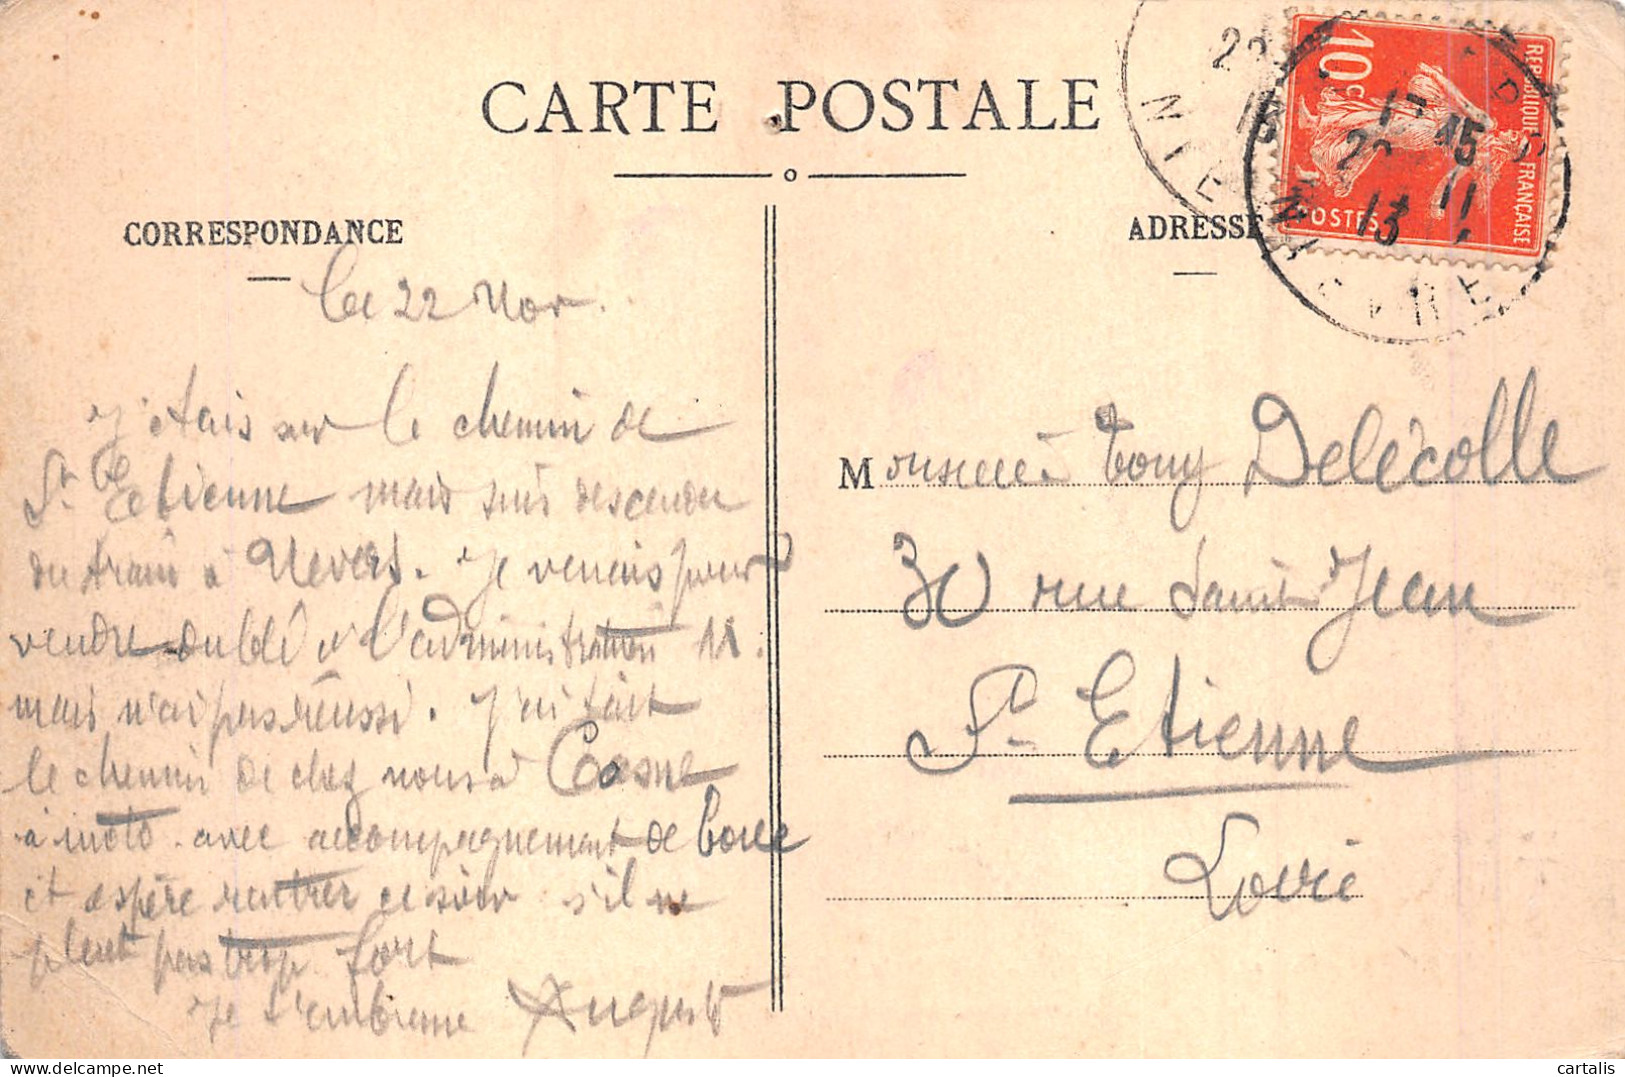 CARTE POSTALE
CORRESPONDANCE
ADRESSE
REPUBLIQUE FRANÇAISE
10c
POSTES
NIEVRE
17 45
22 11
13
Le 22 Nov.
J'étais sur le chemin de
St Etienne mais suis descendu
du train à Nevers. Je venais pour
vendre du blé à l'administration
mais n'ai pas réussi. J'ai fait
le chemin de chez nous à Cosne
à moto avec accompagnement de boue
et espère rentrer ce soir s'il ne
pleut pas trop fort
Je t'embrasse August
Monsieur Tony Delécolle
30 rue Saint Jean
St Etienne
Loire
cartalis